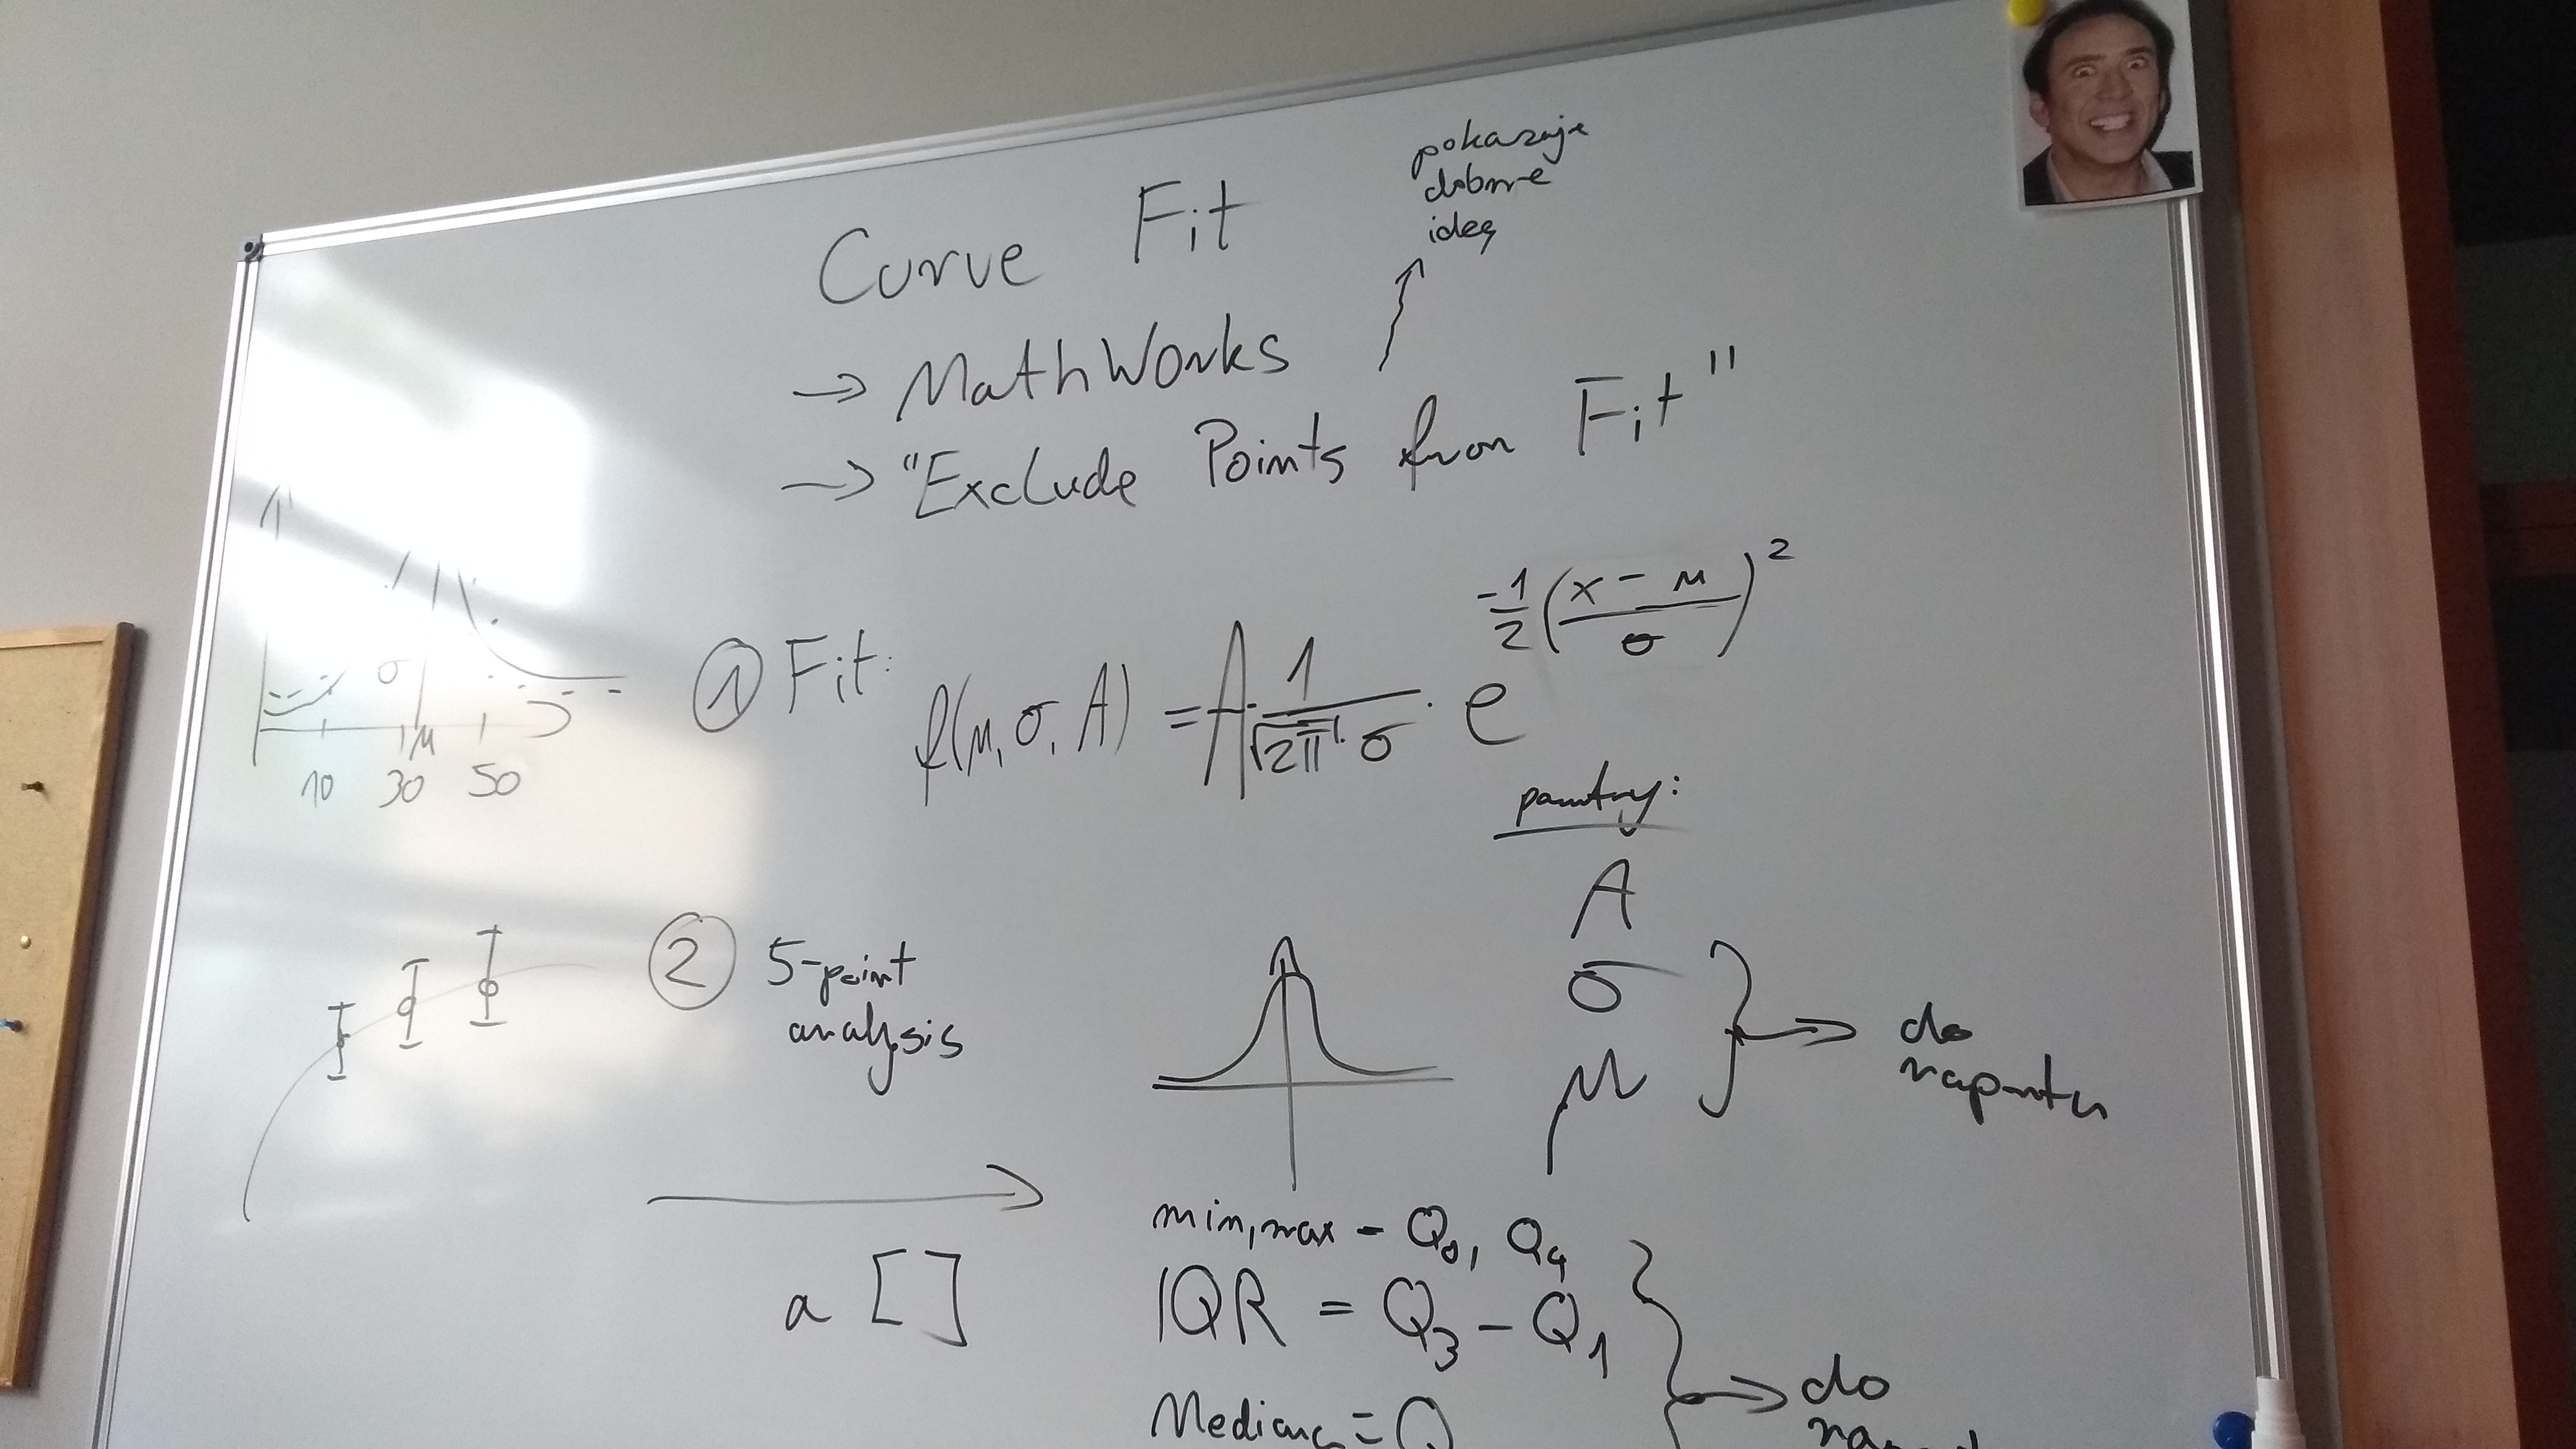 Curve Fit
pokazuje
dobrze
ideę
→ MathWorks
→ "Exclude Points from Fit"
① Fit: f(μ, σ, A) = A · 1/(√2π · σ) · e^(-1/2 ((x - μ)/σ)^2)
σ
μ
10 30 50
paramtry:
A
σ
μ
do
raportu
② 5-point
analysis
a []
min, max - Q0, Q4
IQR = Q3 - Q1
Mediana = Q
do